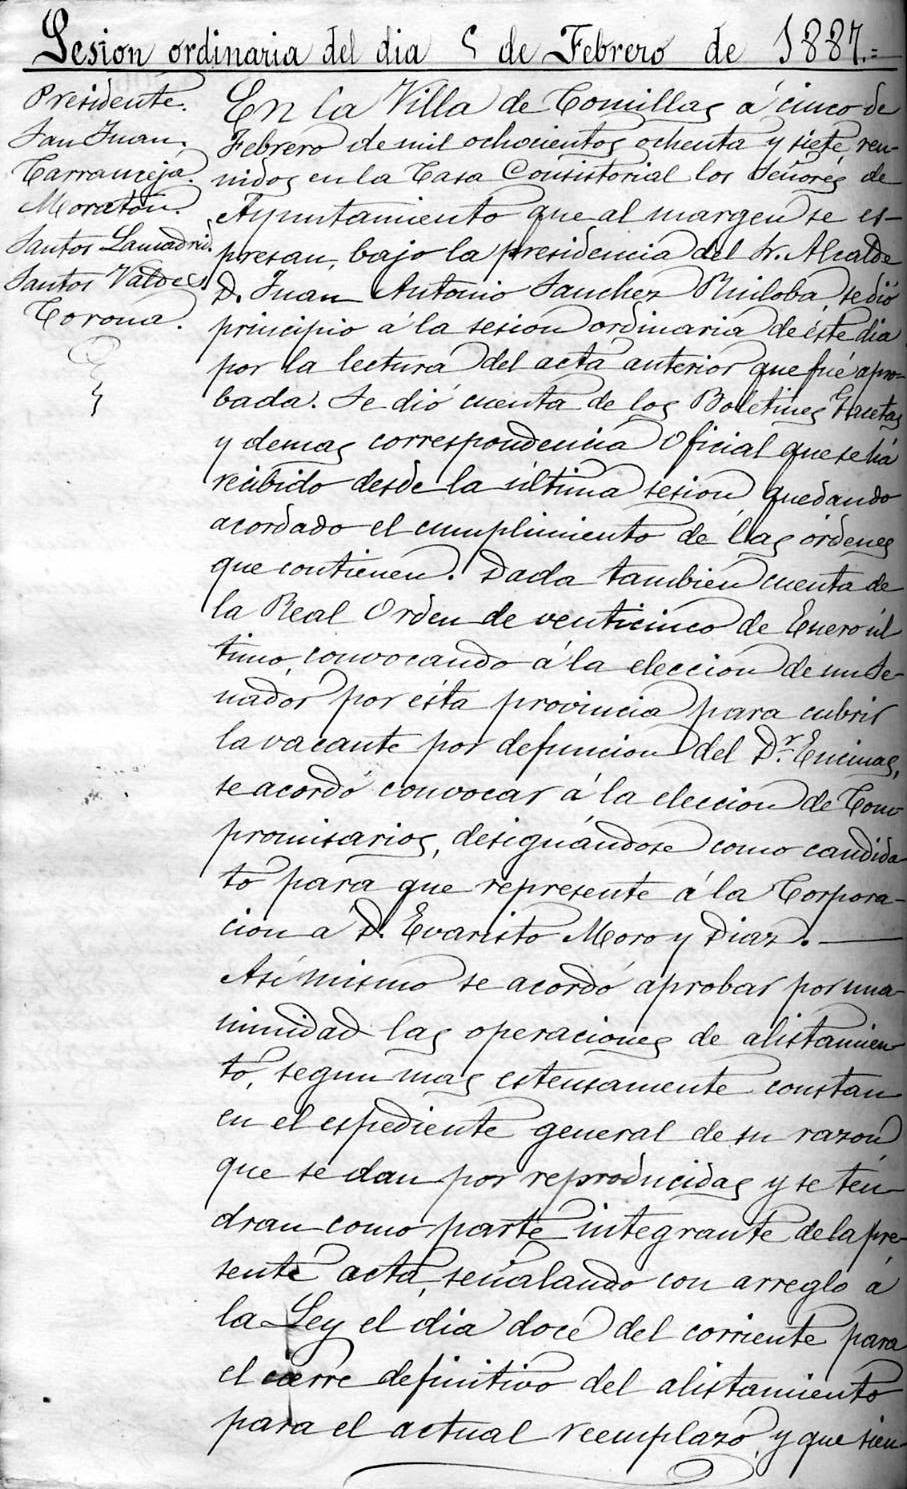 Sesion ordinaria del dia 5 de Febrero de 1887.=
Presidente.
San Juan.
Tarranceja.
Moraton.
Santos Lamadrid.
Santos Valdes
Corona.
En la Villa de Comillas á cinco de
Febrero de mil ochocientos ochenta y siete reu-
nidos en la Casa Consistorial los Señores de
Ayuntamiento que al margen se es-
presan, bajo la presidencia del Sr. Alcalde
D. Juan Antonio Sanchez Ruiloba se dió
principio á la sesion ordinaria de éste dia
por la lectura del acta anterior que fué apro-
bada. Se dió cuenta de los Boletines Gacetas
y demas correspondencia Oficial que se há
recibido desde la última sesion quedando
acordado el cumplimiento de las órdenes
que contienen. Dada tambien cuenta de
la Real Orden de venticinco de Enero úl
timo, convocando á la eleccion de un Se-
nador por ésta provincia para cubrir
la vacante por defuncion del Dr. Encinas,
se acordó convocar á la eleccion de Com
promisarios, designándose como candida
to para que represente á la Corpora-
cion á D. Evaristo Moro y Diaz.
Asi mismo se acordó aprobar por una-
nimidad las operaciones de alistamien
to, segun mas estensamente constan
en el espediente general de su razon
que se dan por reproducidas y se ten
dran como parte integrante de la pre-
sente acta, señalando con arreglo á
la Ley el dia doce del corriente para
el cierre definitivo del alistamiento
para el actual reemplazo, y que sien-